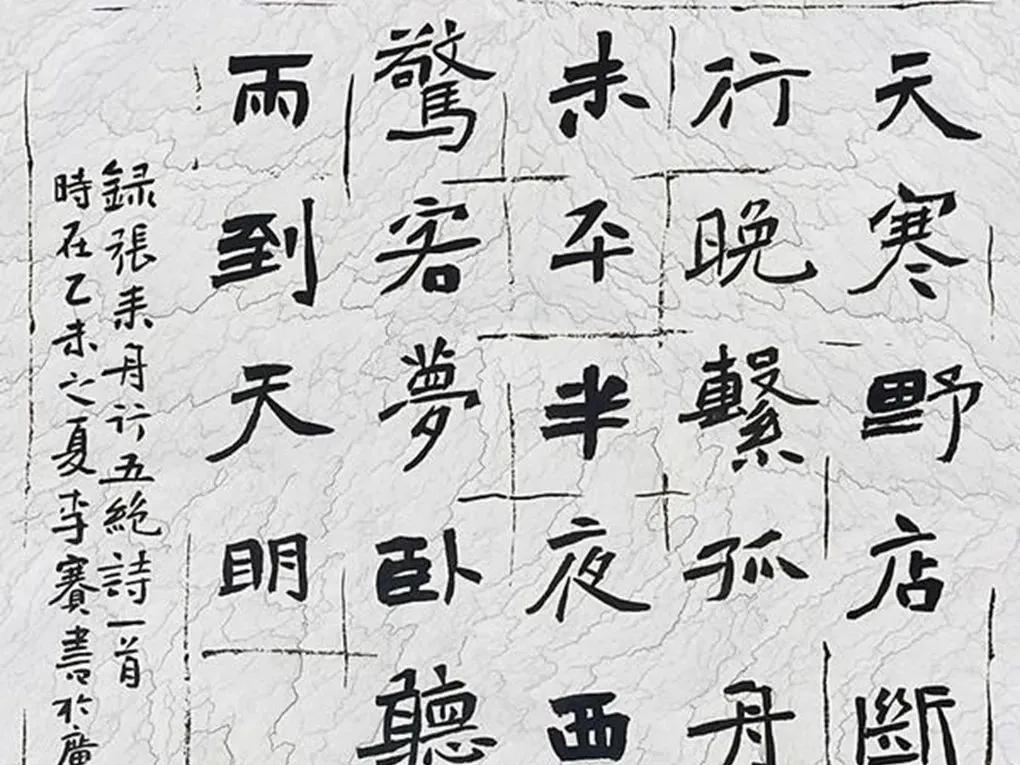 天寒野店斷
行晚繫孤舟
未平半夜西
驚客夢卧聽
雨到天明
録張耒舟行五絶詩一首
時在乙未之夏李賽書於廣